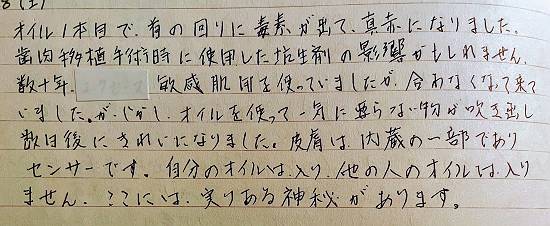 8(土)
オイル1本目で、首の回りに毒素が出て、真赤になりました。
歯肉移植手術時に使用した抗生剤の影響かもしれません。
数十年、 敏感肌用を使っていましたが、合わなくなって来て
いました。が、しかし、オイルを使って一気に要らない物が吹き出し
数日後にきれいになりました。皮膚は、内蔵の一部であり
センサーです。自分のオイルは入り、他の人のオイルは、入り
ません。ここには、実りある神秘があります。